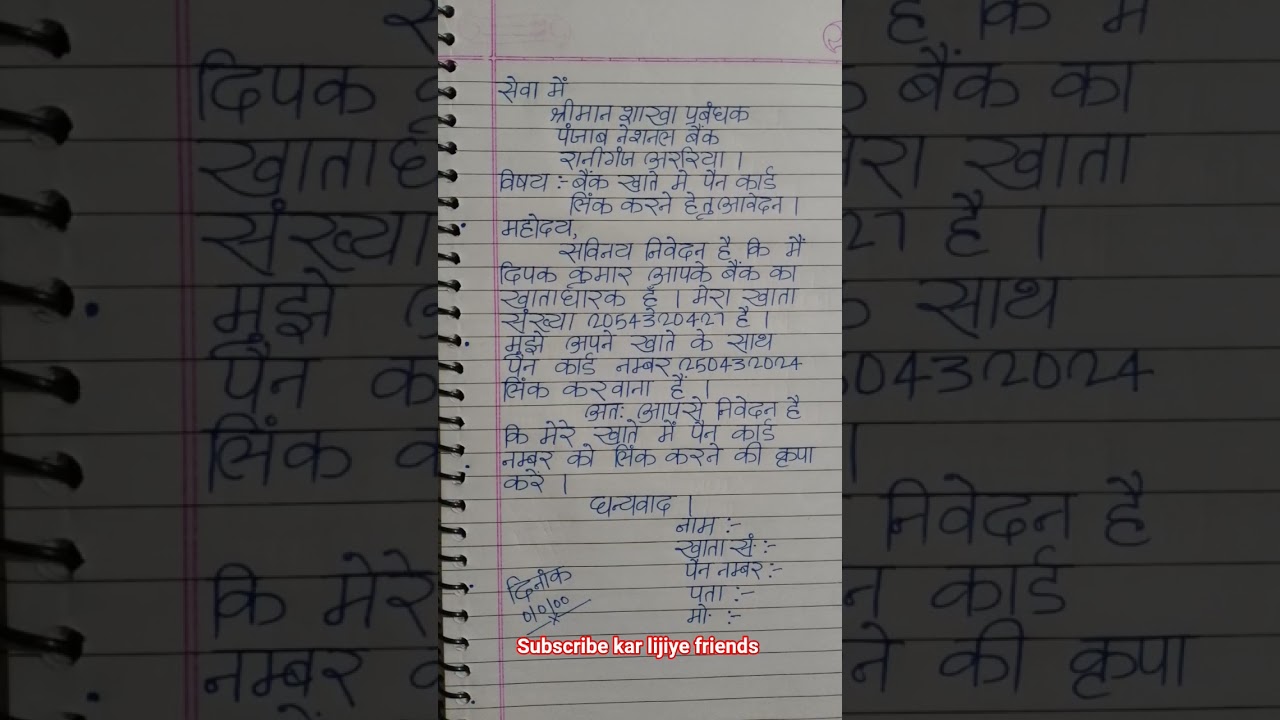 सेवा में
श्रीमान शाखा प्रबंधक
पंजाब नेशनल बैंक
रानीगंज अररिया ।
विषय :- बैंक खाते मे पैन कार्ड
लिंक करने हेतु आवेदन ।
महोदय,
सविनय निवेदन है कि मैं
दिपक कुमार आपके बैंक का
खाताधारक हूँ । मेरा खाता
संख्या 2054320427 है ।
मुझे अपने खाते के साथ
पैन कार्ड नम्बर 250432024
लिंक करवाना हैं ।
अतः आपसे निवेदन है
कि मेरे खाते में पैन कार्ड
नम्बर को लिंक करने की कृपा
करें ।
धन्यवाद ।
नाम :-
खाता सं· :-
पैन नम्बर :-
पता :-
मो· :-
दिनांक
Subscribe kar lijiye friends